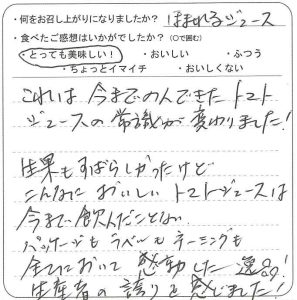 ・何をお召し上がりになりましたか？ ほまれるジュース
・食べたご感想はいかがでしたか？（○で囲む）
・とっても美味しい！ ・おいしい ・ふつう
・ちょっとイマイチ ・おいしくない
これは 今までのんできた トマト
ジュースの 常識が 変わりました!
生果もすばらしかったけど
こんなに おいしい トマトジュースは
今まで 飲んだことない
パッケージも ラベルも ネーミングも
全てにおいて 感動した 逸品!
生産者の 誇りを 感じました!